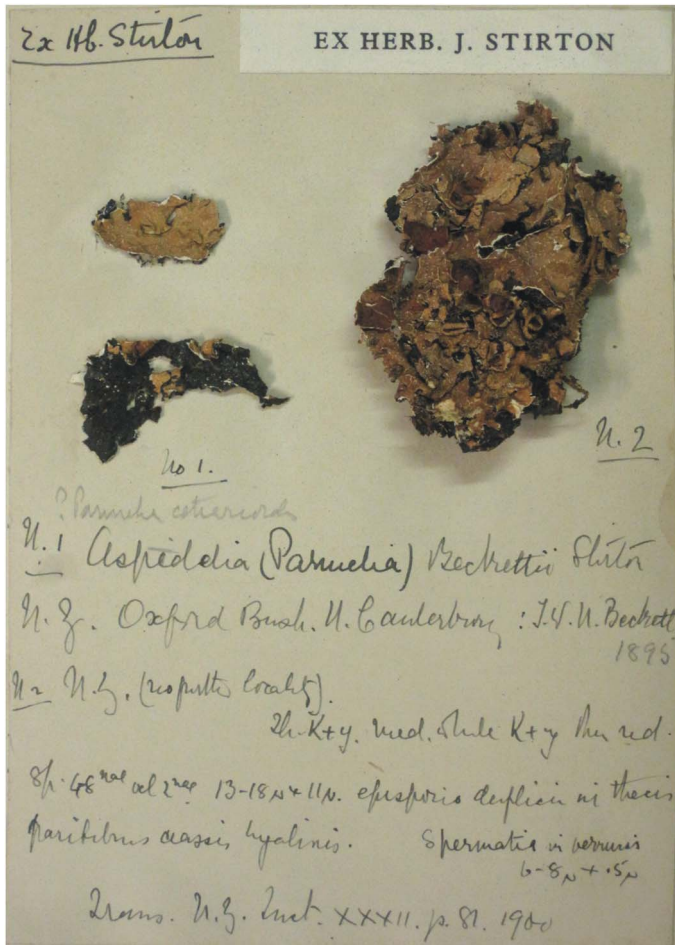 Ex Hb. Stirton
EX HERB. J. STIRTON
No 1.
N. 2
? Parmelia cetrarioides
N. 1 Aspidelia (Parmelia) Beckettii Stirton
N. Z. Oxford Bush. N. Canterbury : T. W. N. Beckett
1895
N 2 N. Z. (no further locality).
Th. K+y. med. white K+y then red.
Sp. 4-8 nae vel 2 nae 13-18µ × 11µ. episporio duplici in thecis
paritibus crassis hyalinis.
Spermatia in
6-8µ + .5µ
Trans. N. Z. Inst. XXXII. p. 81. 1900